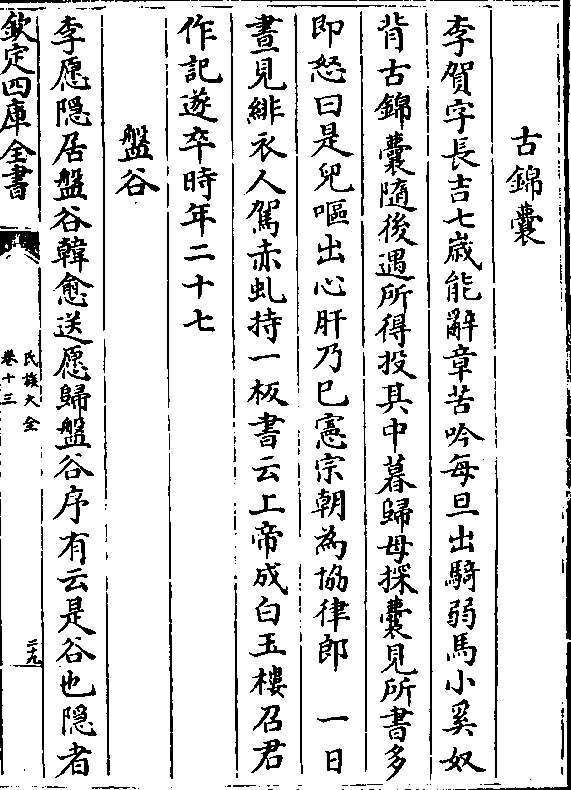 古錦囊
李賀字長吉七歳能辭章苦吟每旦出騎弱馬小奚奴
背古錦囊隨後遇所得投其中暮歸母探囊見所書多
即怒曰是兒嘔出心肝乃已憲宗朝為協律郎　一日
晝見緋衣人駕赤虬持一板書云上帝成白玉樓召君
作記遂卒時年二十七
盤谷
李愿隠居盤谷韓愈送愿歸盤谷序有云是谷也隠者
欽定四庫全書
氏族大全
卷十三
二九